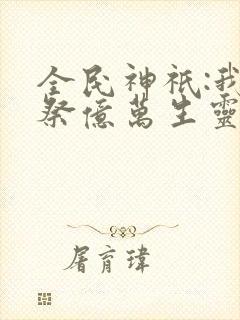 全民神祇:我
祭億萬生靈
屠育瑋